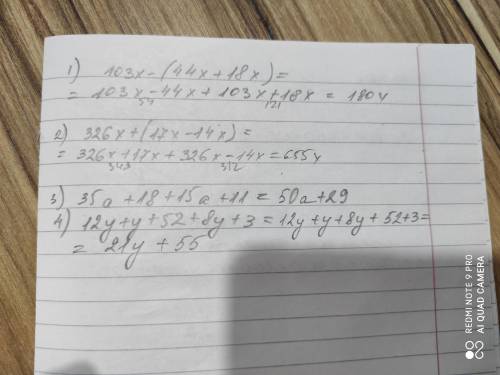 1) 103x-(44x+18x)=
= 103x-44x+103x+18x = 180x
59 121
2) 326x+(17x-14x)=
= 326x+17x+326x-14x=655x
343 312
3) 35a+18+15a+11=50a+29
4) 12y+y+52+8y+3=12y+y+8y+52+3=
= 21y+55
REDMI NOTE 9 PRO
AI QUAD CAMERA